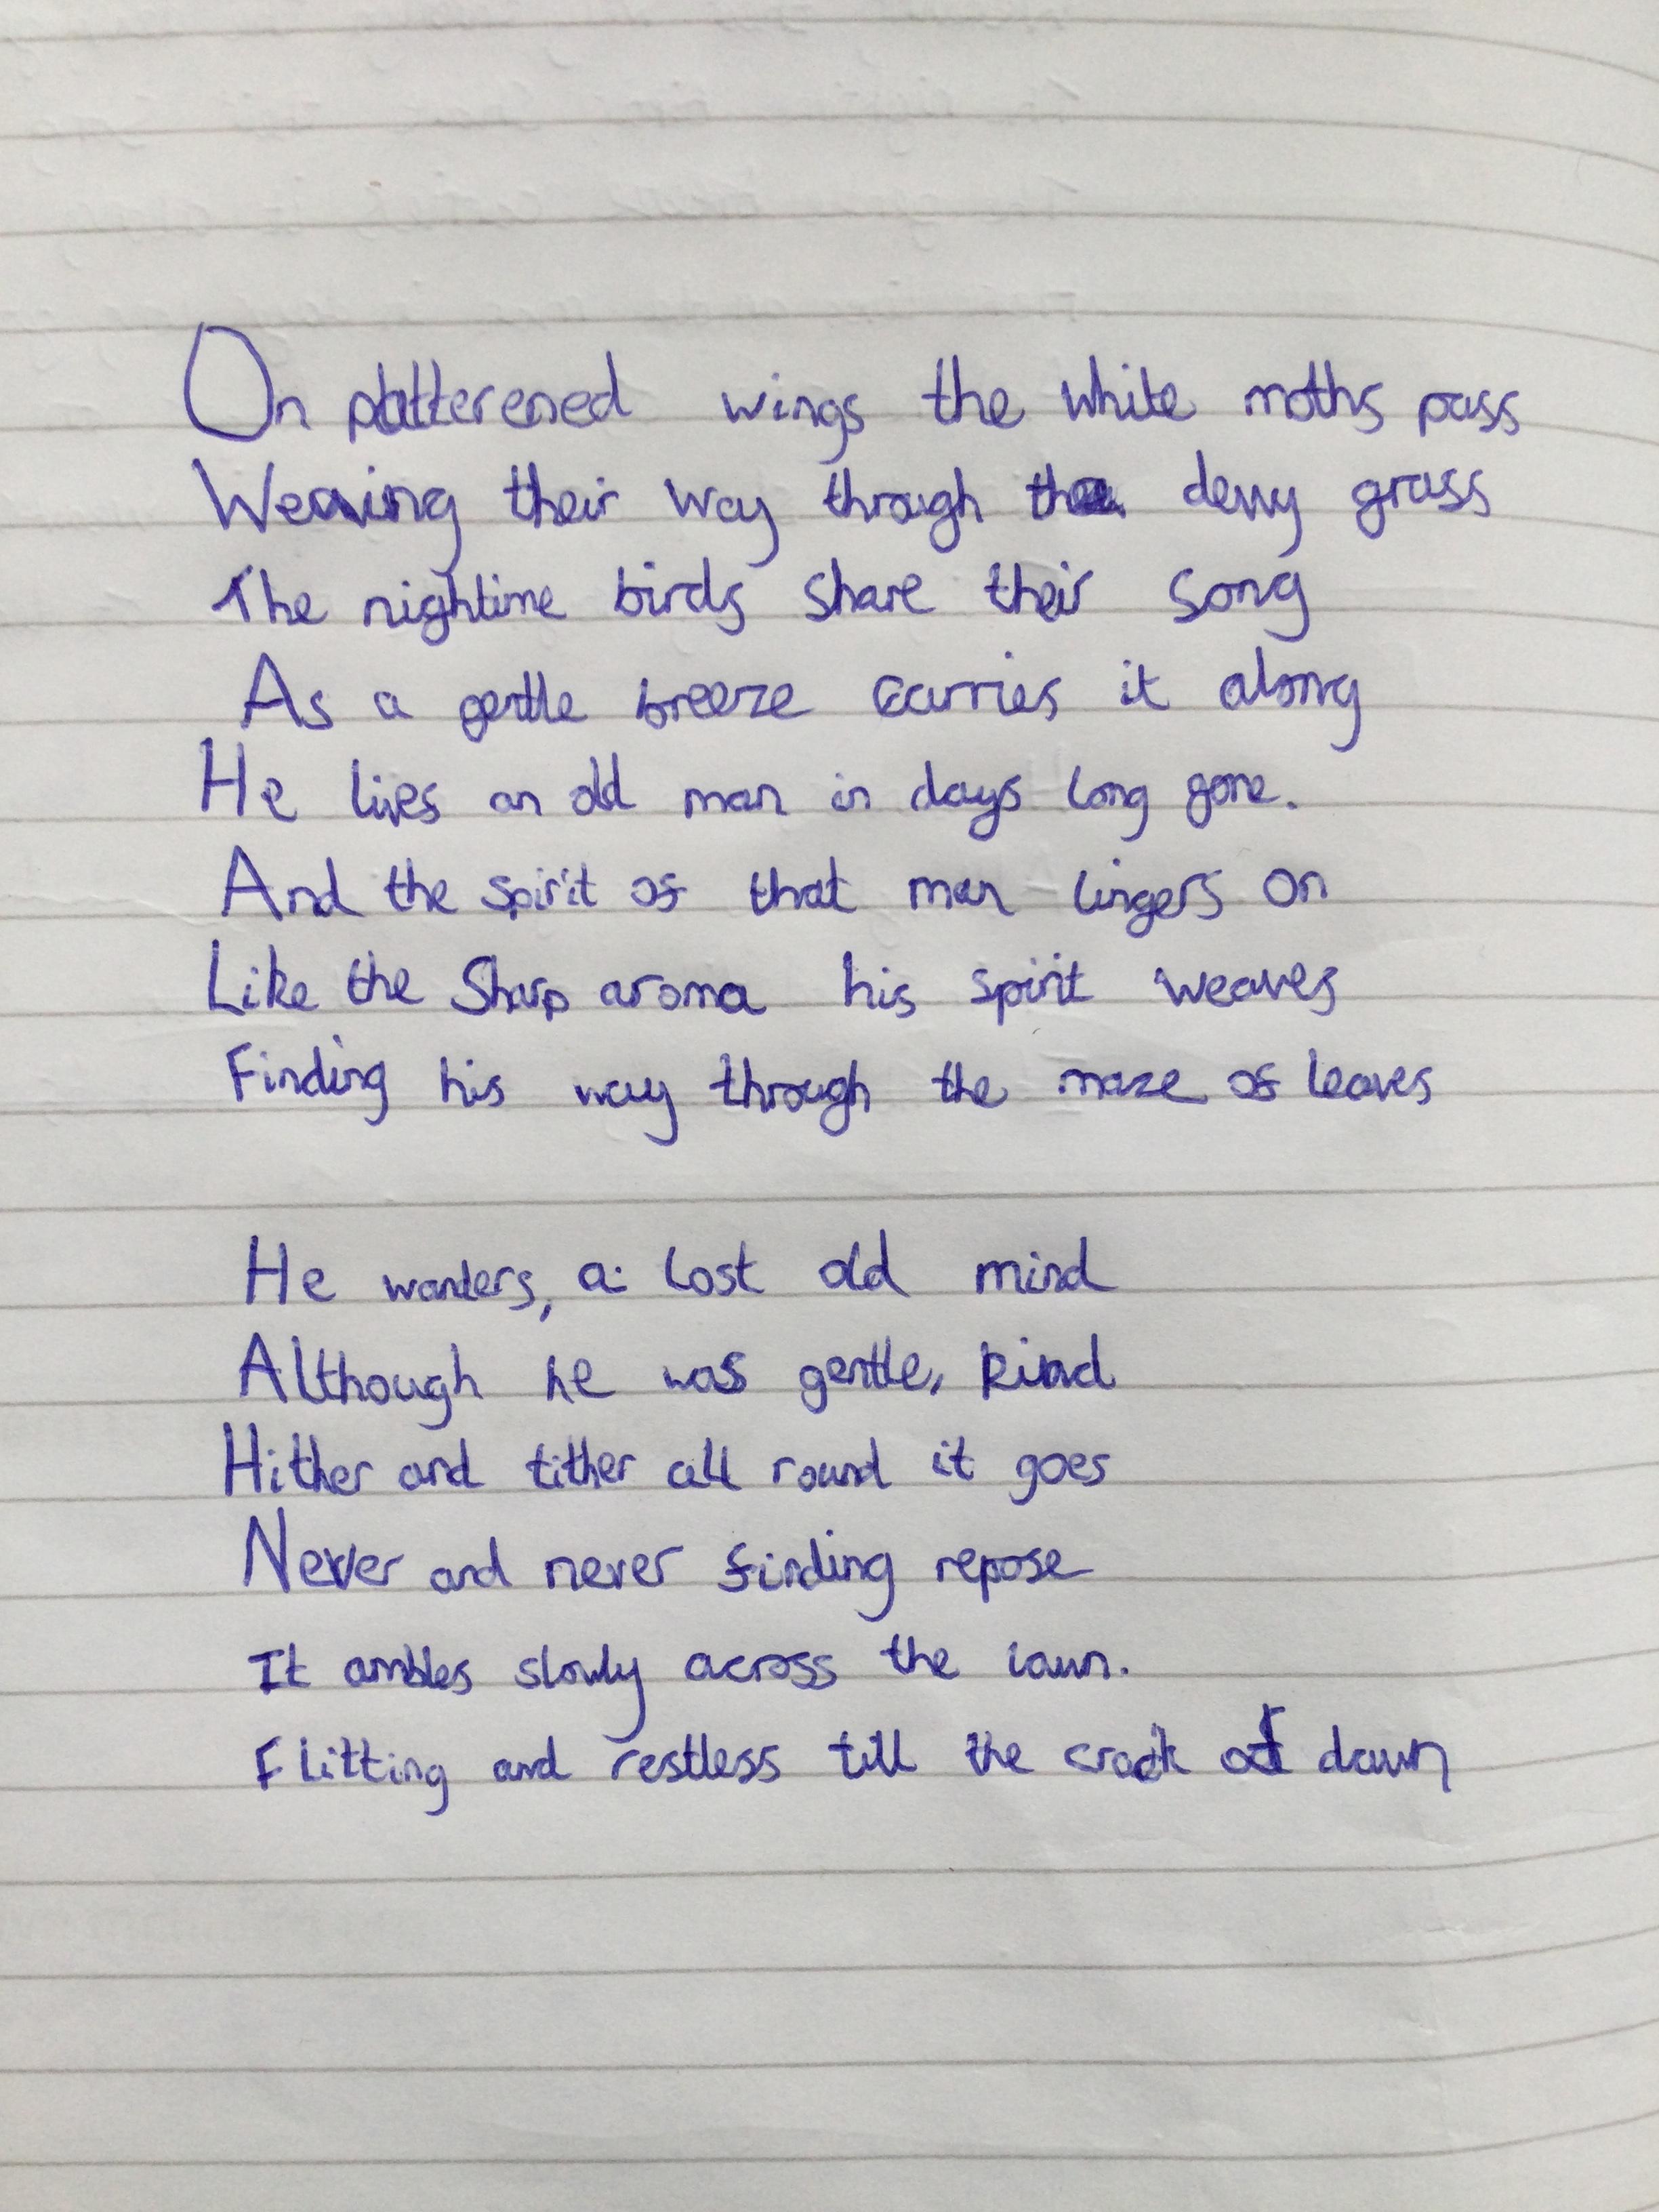 On patterened wings the white moths pass
Weaving their way through the dewy grass
The nightime birds share their song
As a gentle breeze carries it along
He lives an old man in days long gone.
And the spirit of that man lingers on
Like the Sharp aroma his spirit weaves
Finding his way through the maze of leaves
He wanders, a lost old mind
Although he was gentle, kind
Hither and tither all round it goes
Never and never finding repose
It ambles slowly across the lawn.
Flitting and restless till the crack of dawn